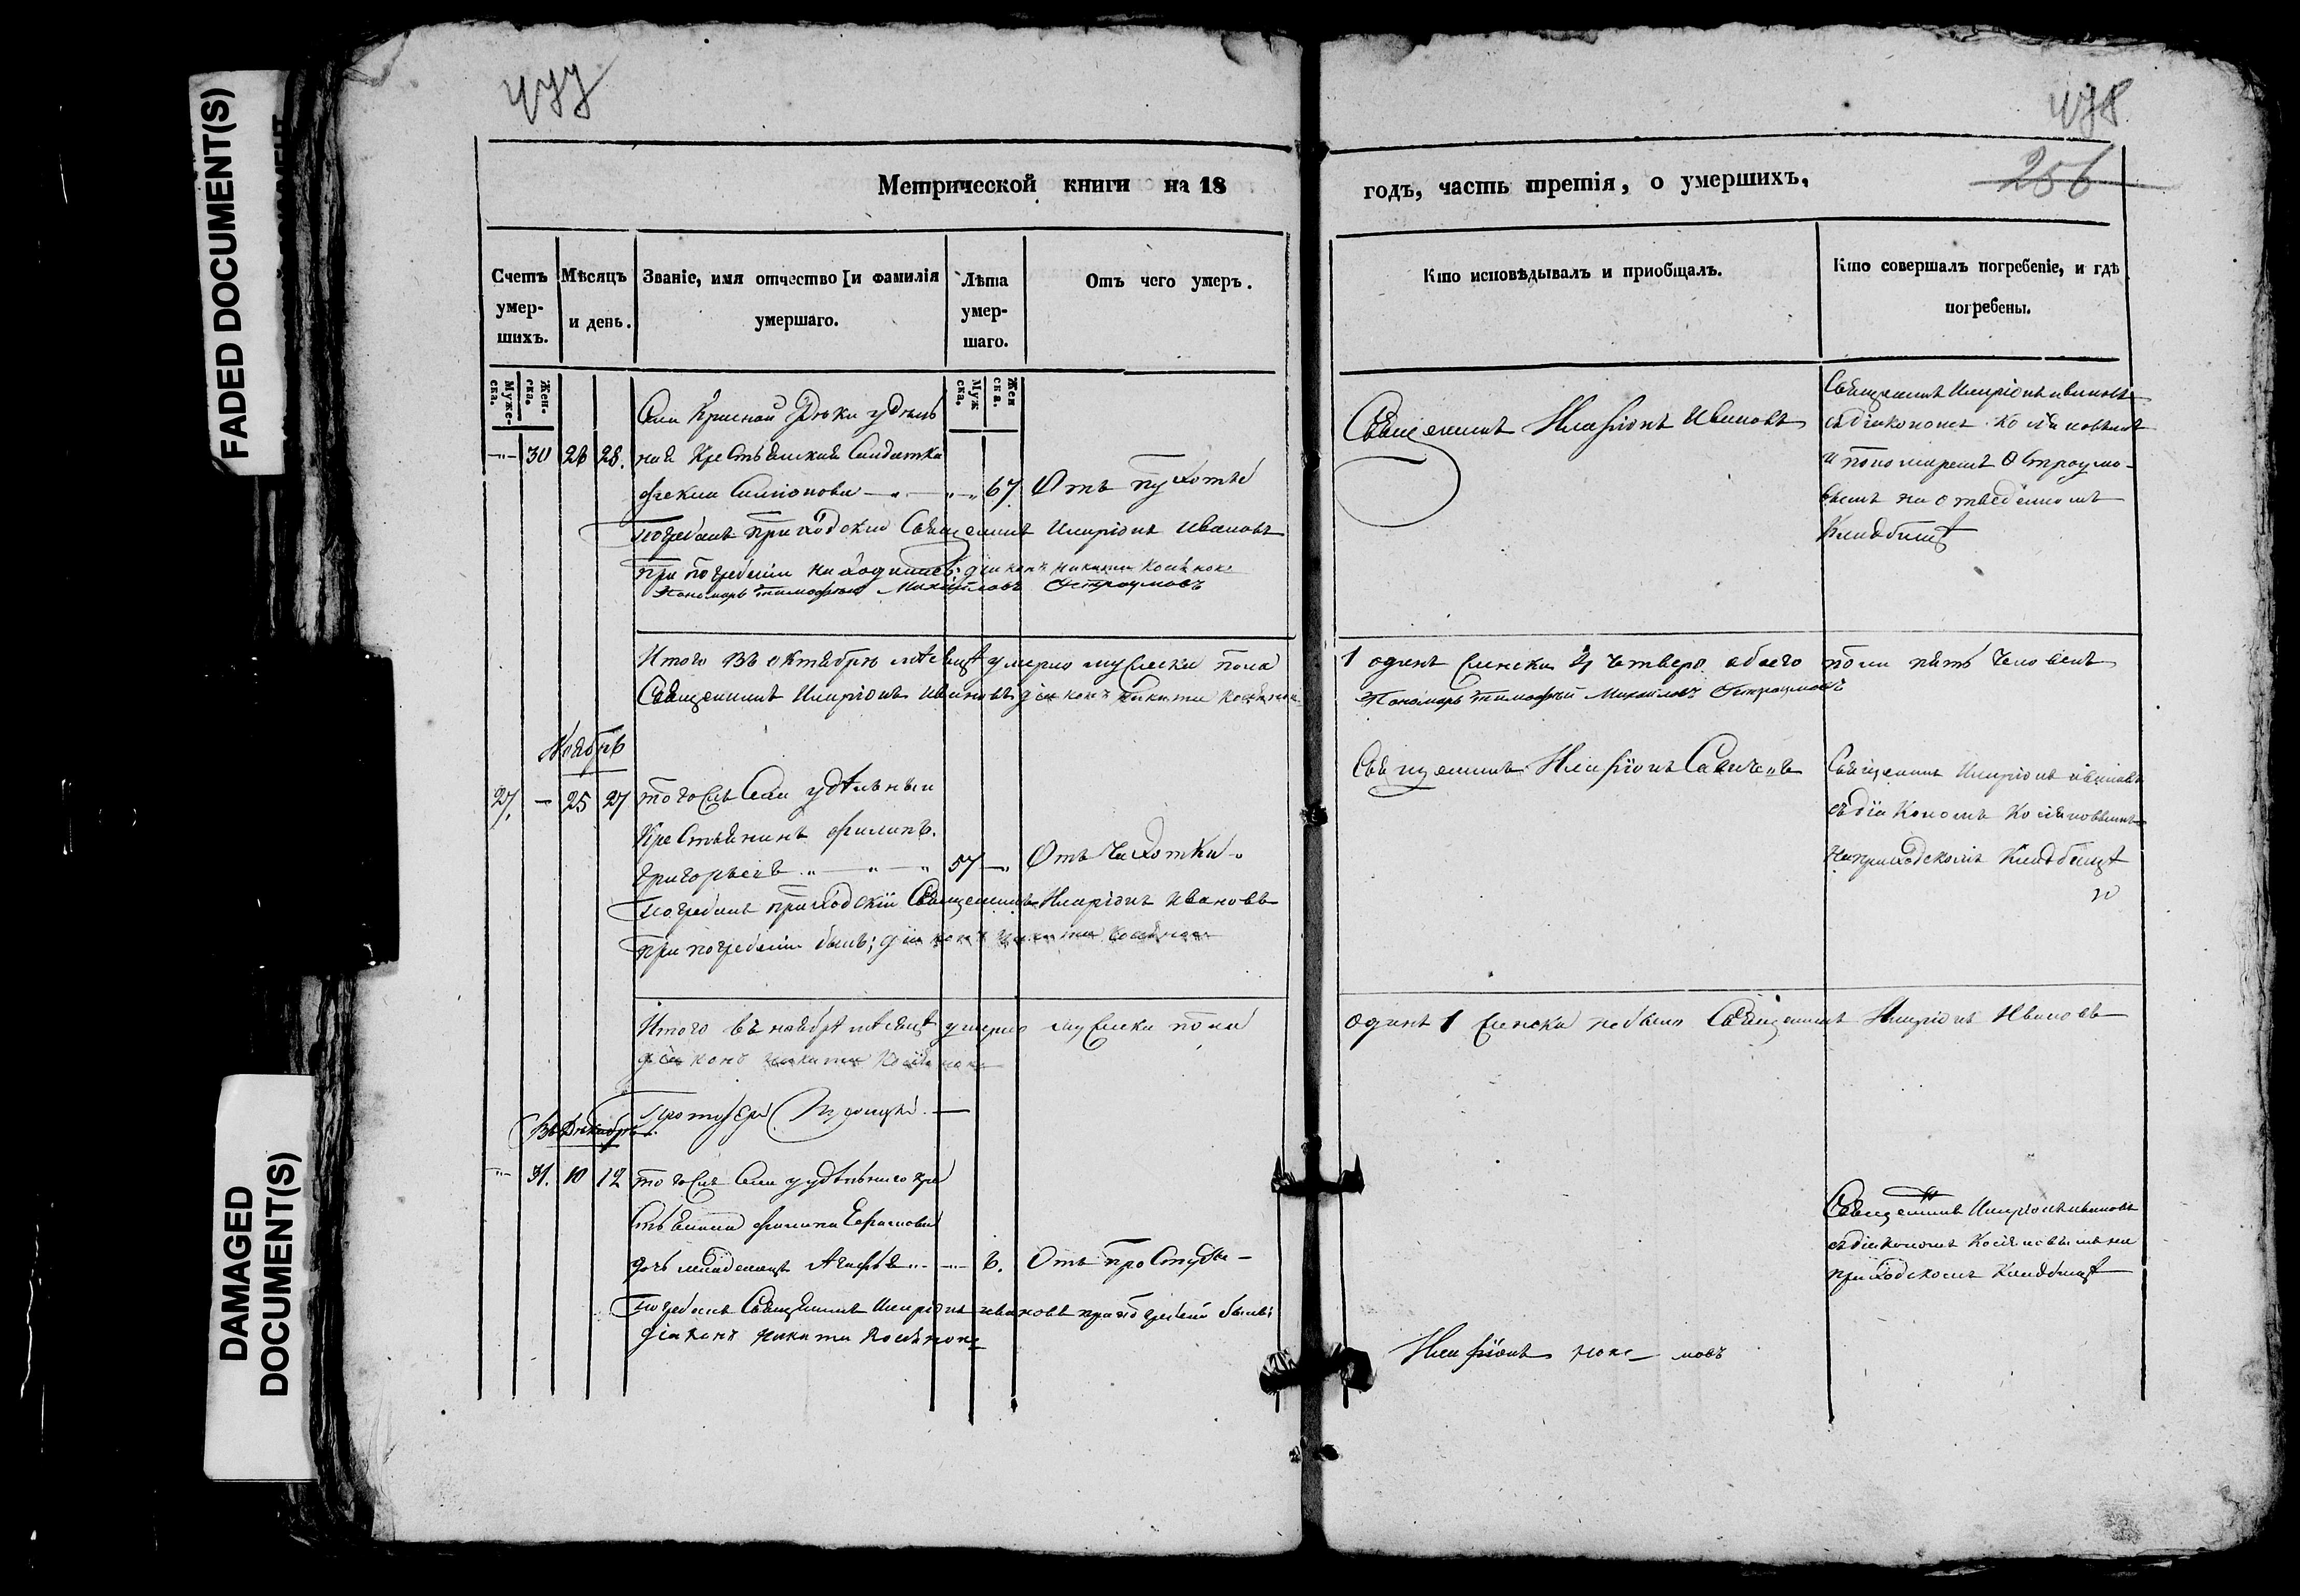 FADED DOCUMENT(S)
DAMAGED
DOCUMENT(S)
Метрической книги на 18
Счетъ умер-шихъ.
Мѣсяцъ и день.
Званіе, имя отчество и фамилія умершаго.
Лѣта умер-шаго.
Отъ чего умеръ.
Муже-ска.
Жен-ска.
Муж ска.
Жен ска.
Села Красной Рѣки удѣль
30 26 28. ная Крестьянская Салдатка
Фекла Симіонова 67 Отъ
Погребалъ приходскій Священникъ Иларіонъ Ивановъ
при погребеніи находились: діаконъ Никита
Пономарь Тимофей Михайловъ Остроумовъ
Итого въ октябрѣ мѣсяцѣ умерло мужеска пола
Священникъ Иларіонъ Ивановъ діаконъ Никита
Ноябрь
27. 25 27 того же Села удѣльный
Крестьянинъ Филипъ
Григорьевъ 57 Отъ Чахотки
Погребалъ приходскій Священникъ Иларіонъ Ивановъ
при погребеніи былъ; діаконъ Никита
Итого въ ноябрѣ мѣсяцѣ умерло мужеска пола
діаконъ Никита
Въ Декабрѣ
31. 10 12 того же Села удѣльнаго кре
стьянина Филипа
дочь младенецъ 6. Отъ Простуды
Погребалъ Священникъ Иларіонъ Ивановъ при погребеніи былъ:
діаконъ Никита
256
годъ, часть третія, о умершихъ.
Кто исповѣдывалъ и приобщалъ.
Кто совершалъ погребеніе, и гдѣ погребены.
Священникъ Иларіонъ Ивановъ
Священникъ Иларіонъ Ивановъ
съ діакономъ
и пономаремъ Остроумо-
вымъ на отведенномъ
Кладбищѣ
1 одинъ женска 4 четверо обоего пола пять человекъ
Пономарь Тимофей Михайловъ Остроумовъ
Священникъ Иларіонъ
Священникъ Иларіонъ Ивановъ
съ діакономъ
на приходскомъ Кладбищѣ
одинъ 1 женска небыло Священникъ Иларіонъ Ивановъ
Священникъ Иларіонъ Ивановъ
съ діакономъ на
приходскомъ Кладбищѣ
Иларіонъ